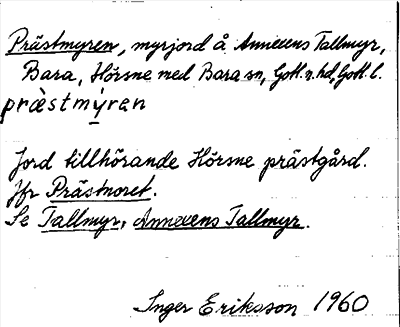 Prästmyren, myrjord å Annexens Tallmyr,
Bara, Hörsne med Bara sn, Gotl. n. hd, Gotl. l.
præ̀stmýren
Jord tillhörande Hörsne prästgård.
Jfr Prästnoret.
Se Tallmyr, Annexens Tallmyr.
Inger Eriksson 1960